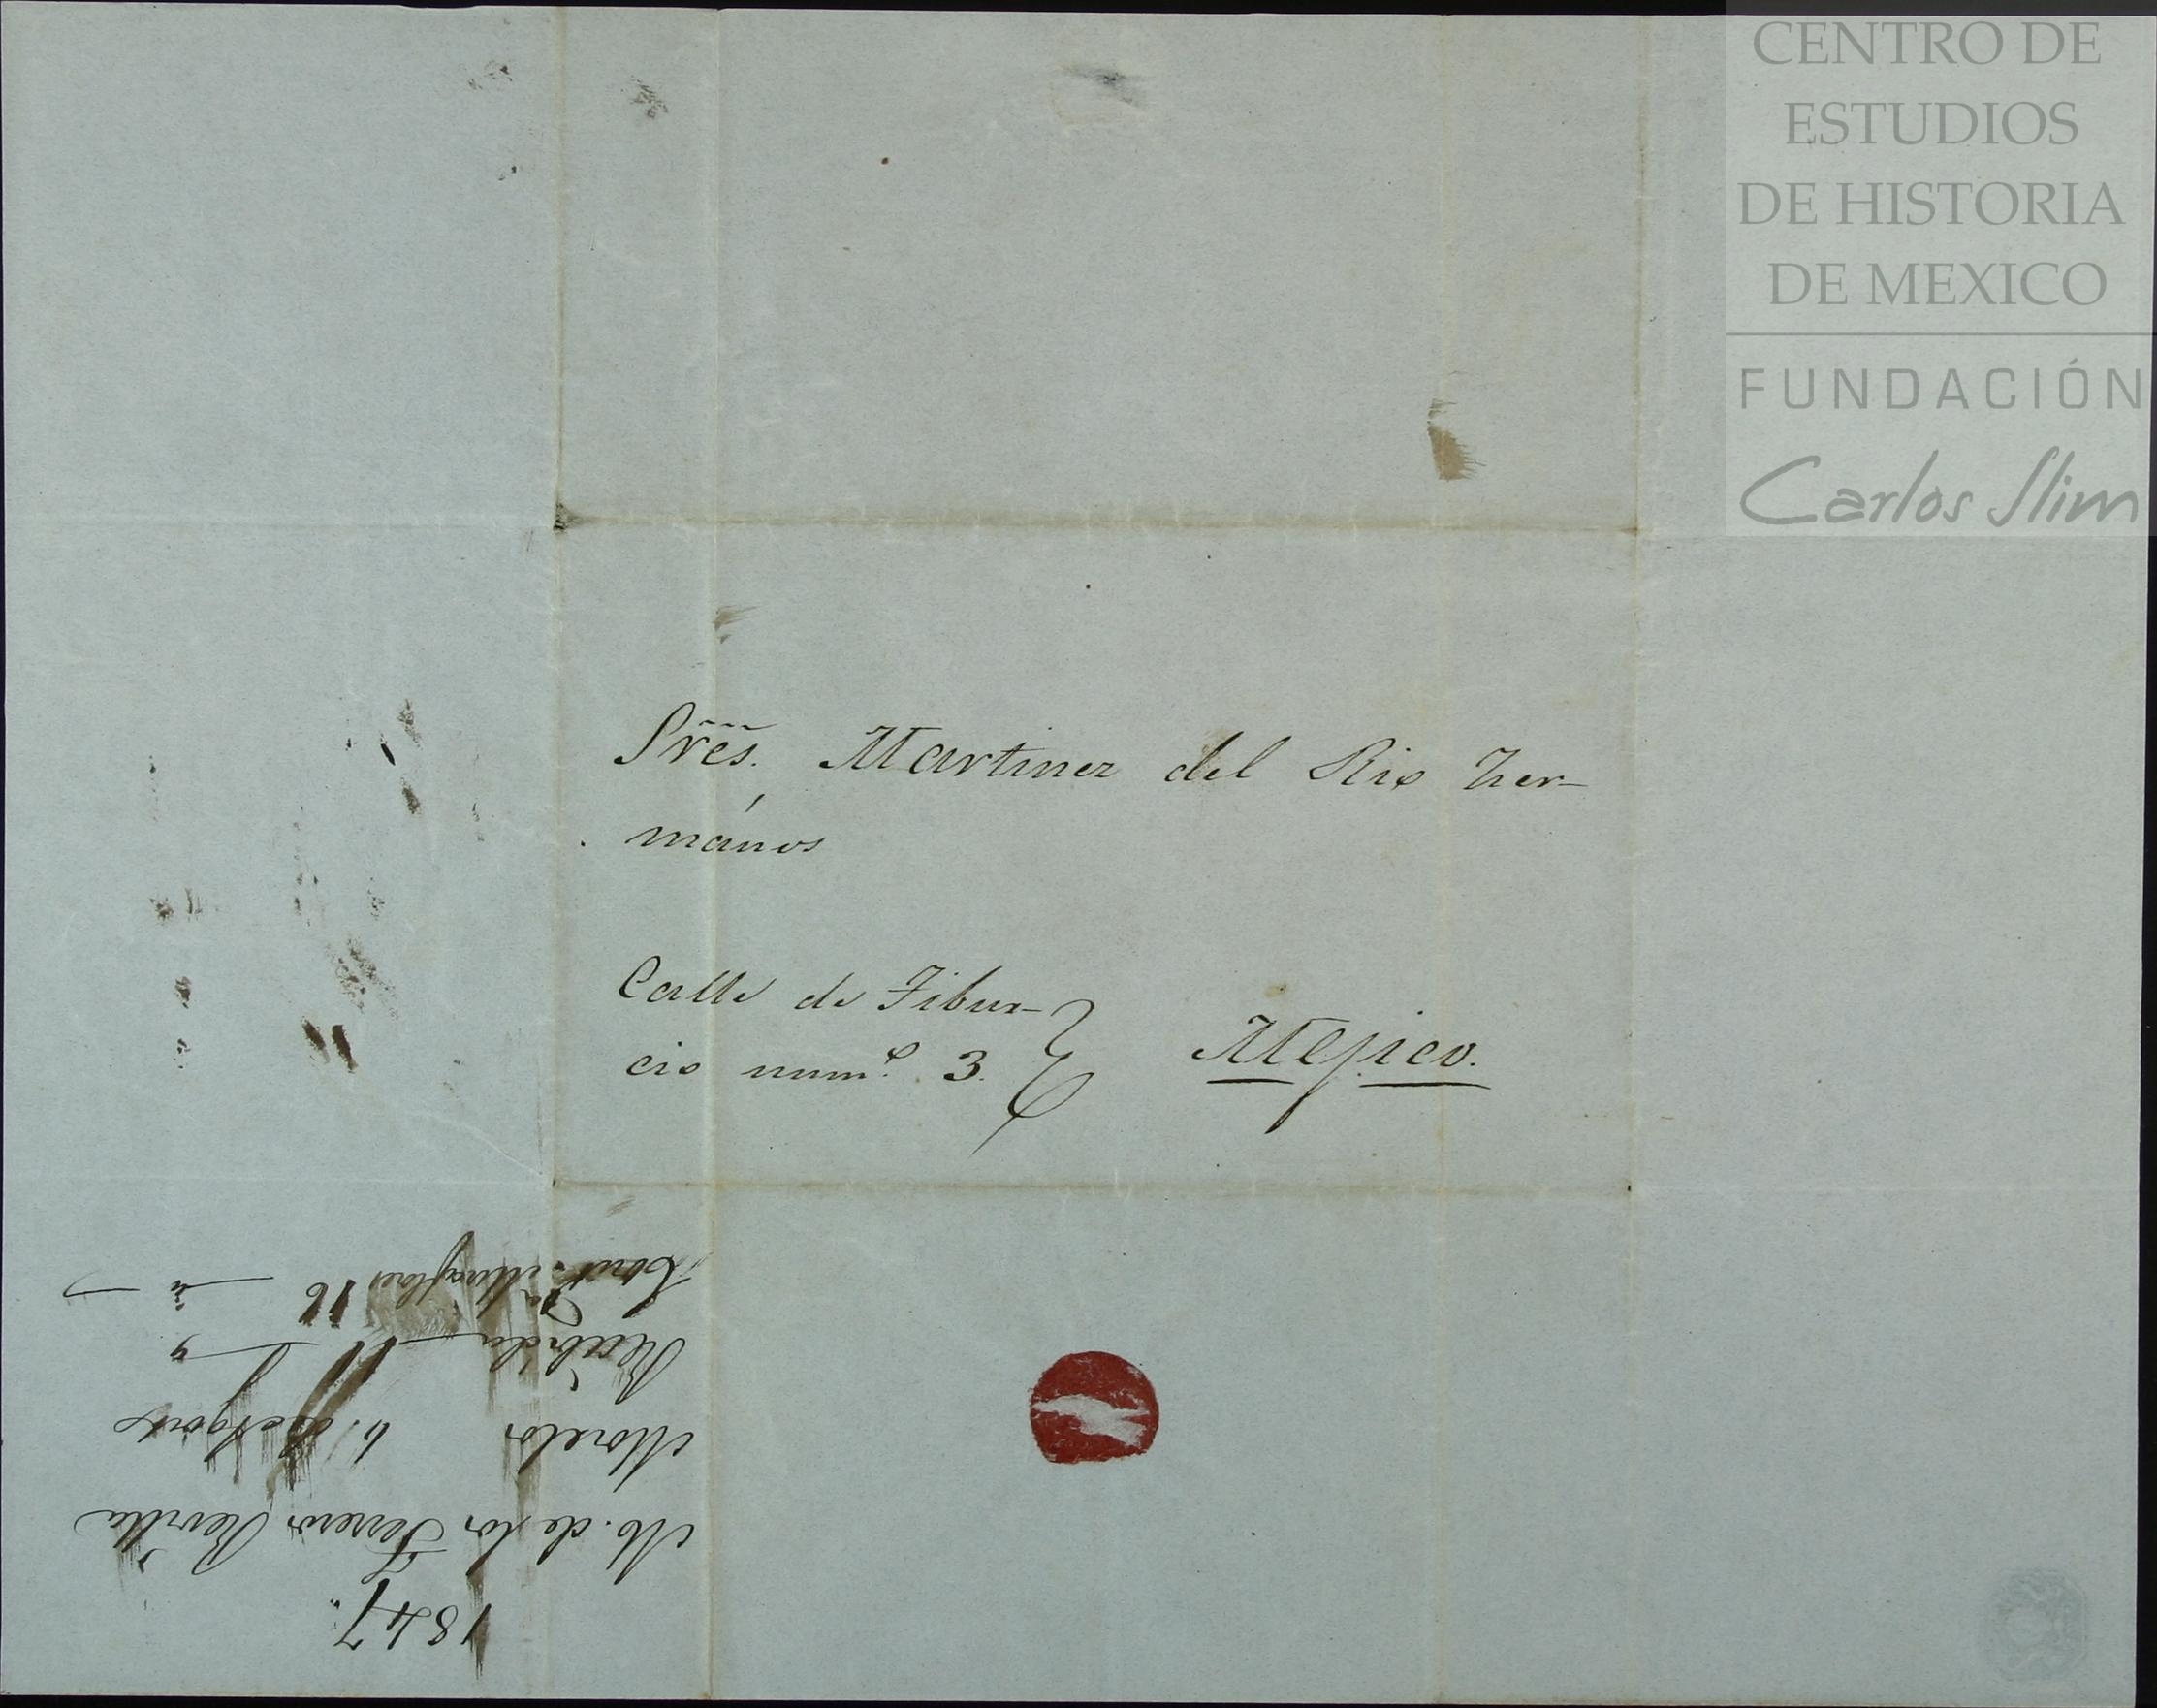 CENTRO DE
ESTUDIOS
DE HISTORIA
DE MEXICO
FUNDACIÓN
Carlos Slim
Sres. Martinez del Rio her-
mános
Calle de Tibur-
cio num.º 3.
Mejico.
1847.
M. de los Terreros Revilla
Morelos 6 Agosto
Recibida 11 "
Cont. 16 " "